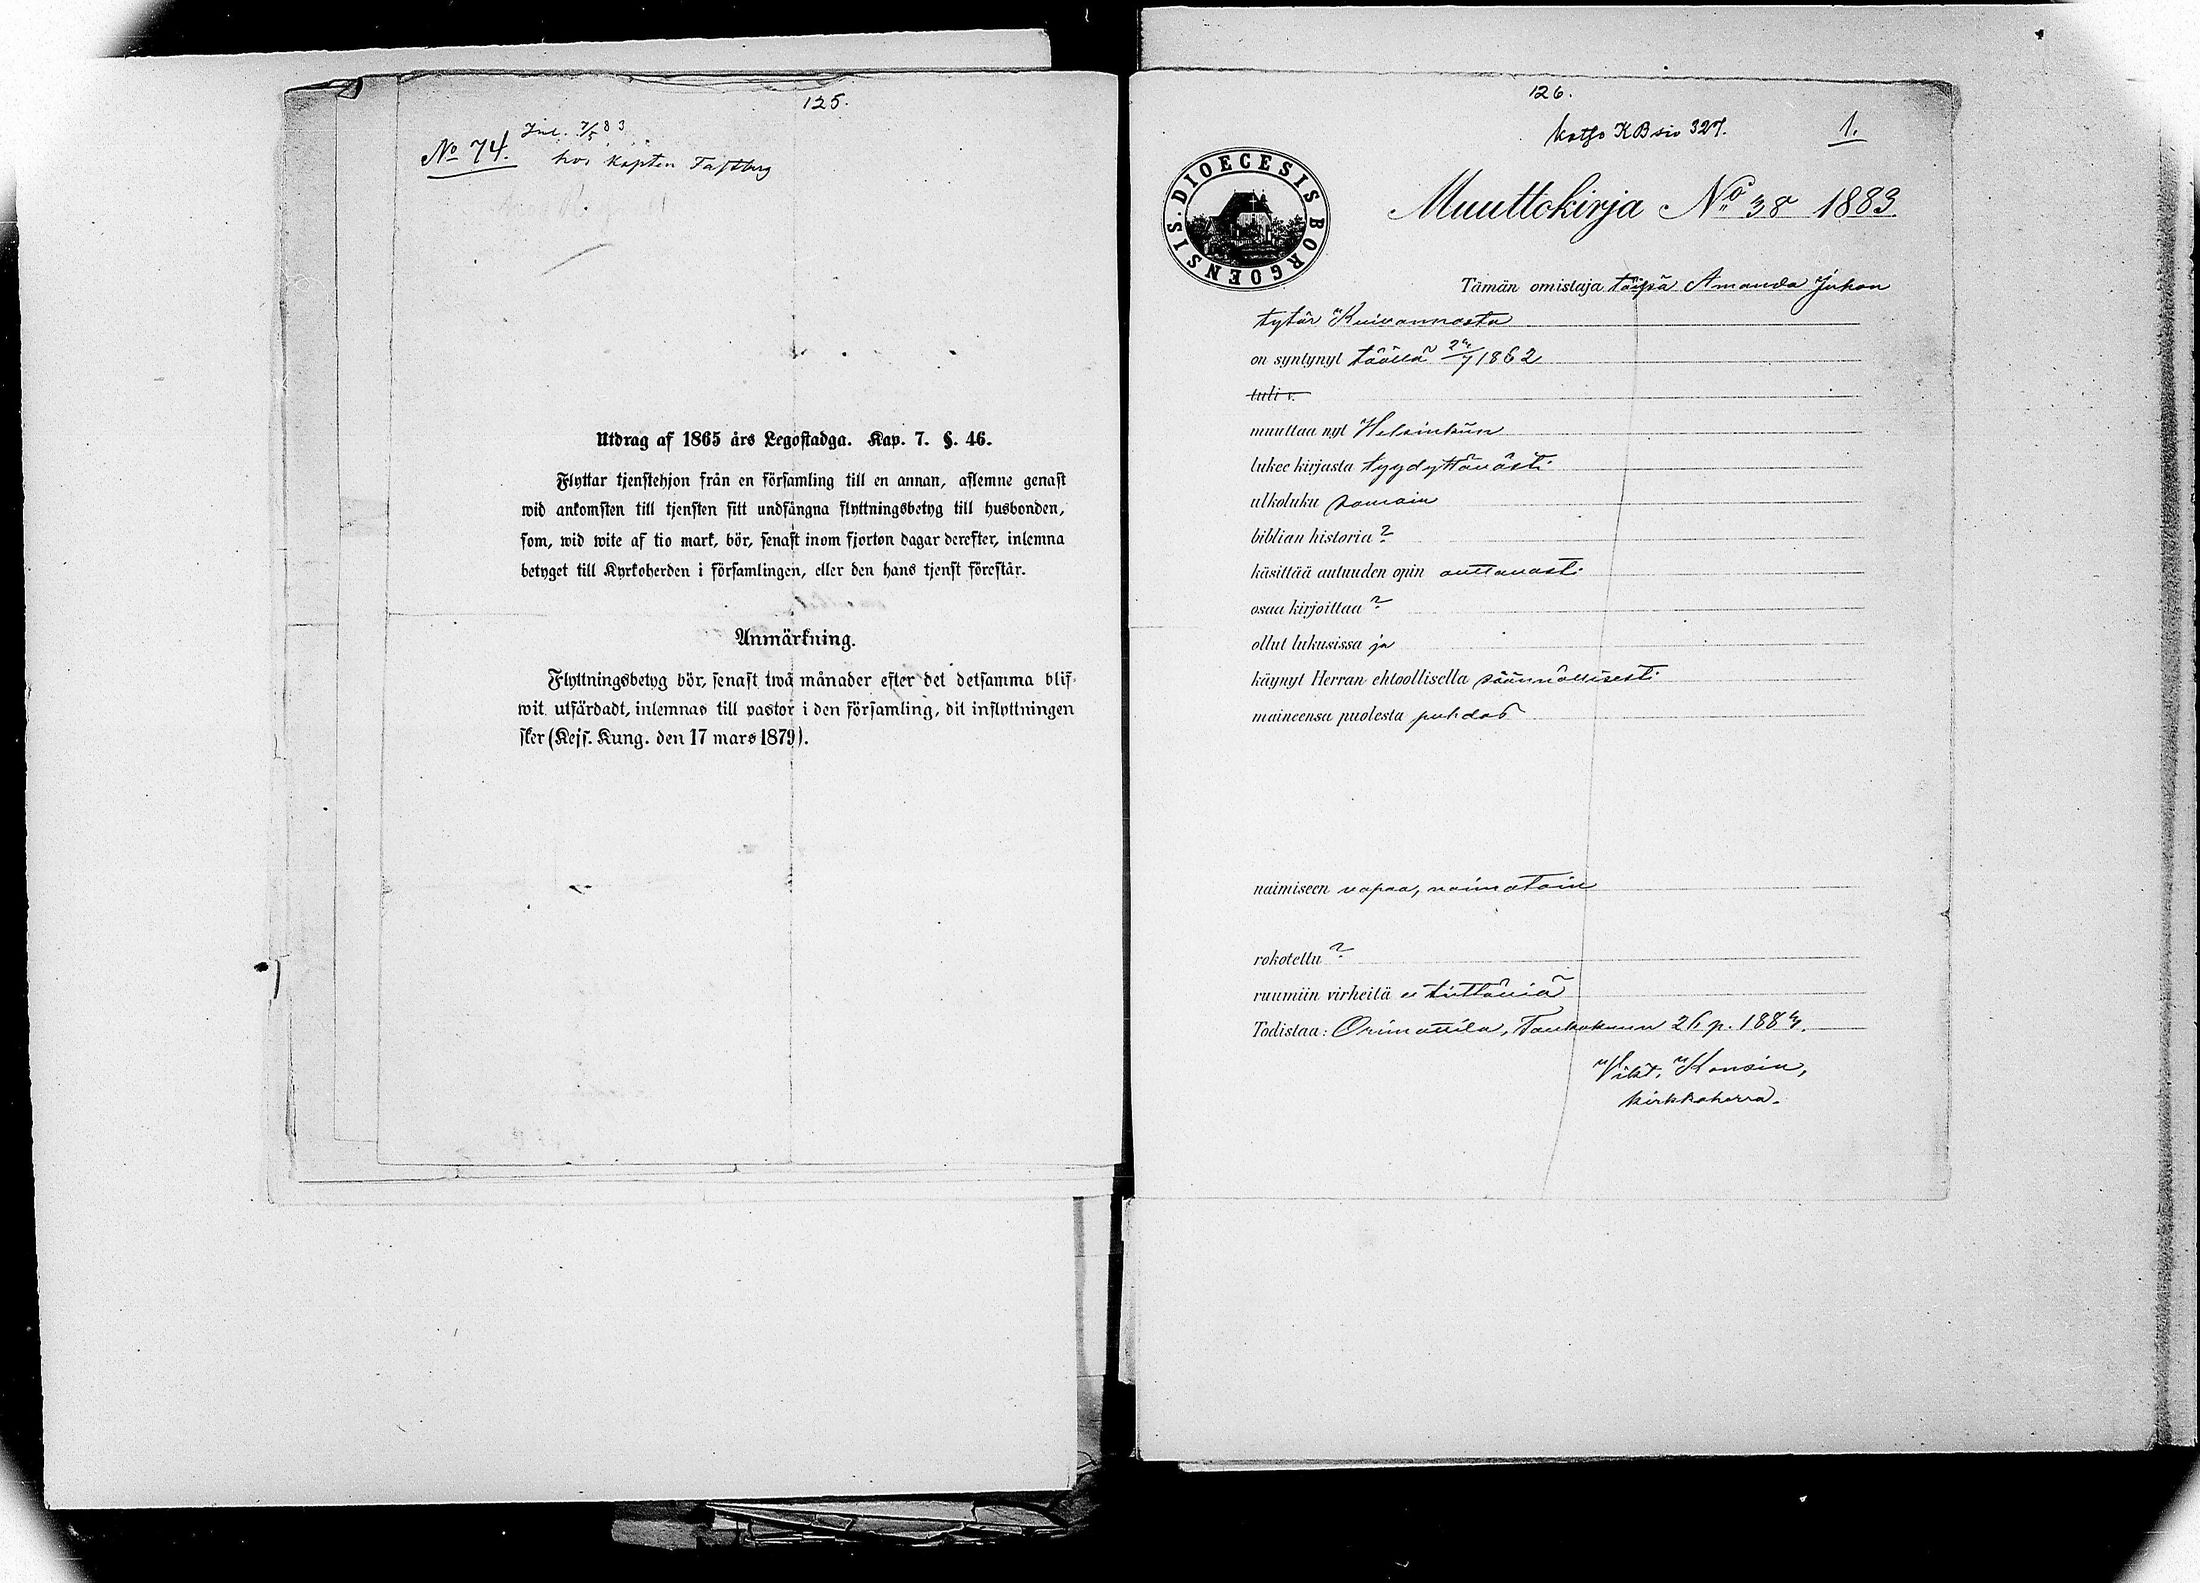 125.
Inl. 7/5 83
No 74.
hos Kapten
Utdrag af 1865 års Legostadga. Kap. 7. §. 46.
Flyttar tjenstehjon från en församling till en annan, aflemne genast
wid ankomsten till tjensten sitt undfångna flyttningsbetyg till husbonden,
som, wid wite af tio mark, bör, senast inom fjorton dagar derefter, inlemna
betyget till Kyrkoherden i församlingen, eller den hans tjenst förestår.
Anmärkning.
Flyttningsbetyg bör, senast twå månader efter det detsamma blif-
wit utfärdadt, inlemnas till pastor i den församling, dit inflyttningen
sker (Kejs. Kung. den 17 mars 1879).
126.
katso KB siv 327.
1.
DIOECESIS BORGOENSIS.
Muuttokirja No 38 1883
Tämän omistaja Amanda Juhon
tytär Kuivannosta
on syntynyt täällä 1862
tuli v.
muuttaa nyt Helsinkiin
lukee kirjasta tyydyttäväst:
ulkoluku samoin
biblian historia ?
käsittää autuuden opin auttavast:
osaa kirjoittaa ?
ollut lukusissa ja
käynyt Herran ehtoollisella säännöllisest:
maineensa puolesta puhdas
naimiseen vapaa, naimatoin
rokotettu ?
ruumiin virheitä ei tiettäviä
Todistaa: Orimattila, Toukokuun p. 188
Vikt. Konsin,
kirkkoherra.